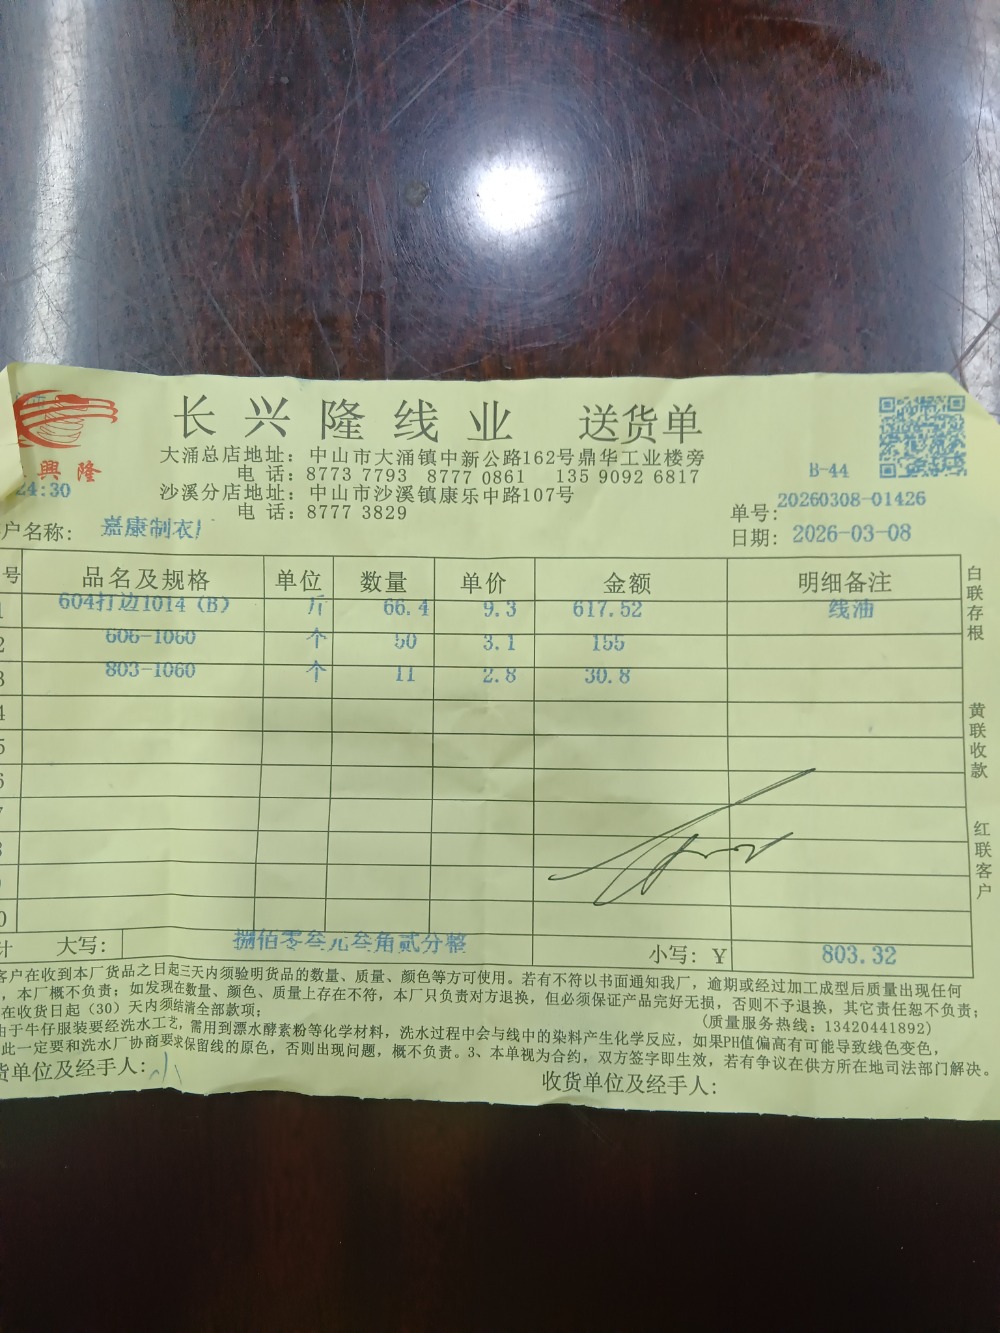 長興隆
长兴隆线业 送货单
大涌总店地址: 中山市大涌镇中新公路162号鼎华工业楼旁
电 话: 8773 7793 8777 0861 135 9092 6817
沙溪分店地址: 中山市沙溪镇康乐中路107号
电 话: 8777 3829
B-44
24:30
单号: 20260308-01426
户名称: 嘉康制衣厂
日期: 2026-03-08
号 品名及规格 单位 数量 单价 金额 明细备注
1 604打边1014 (B) 斤 66.4 9.3 617.52 线油
2 606-1060 个 50 3.1 155
3 803-1060 个 11 2.8 30.8
4
5
6
7
8
9
0
计 大写: 捌佰零叁元叁角贰分整 小写: ¥ 803.32
白联存根
黄联收款
红联客户
客户在收到本厂货品之日起三天内须验明货品的数量、质量、颜色等方可使用。若有不符以书面通知我厂，逾期或经过加工成型后质量出现任何
，本厂概不负责；如发现在数量、颜色、质量上存在不符，本厂只负责对方退换，但必须保证产品完好无损，否则不予退换，其它责任恕不负责；
在收货日起（30）天内须结清全部款项； (质量服务热线: 13420441892)
由于牛仔服装要经洗水工艺，需用到漂水酵素粉等化学材料，洗水过程中会与线中的染料产生化学反应，如果PH值偏高有可能导致线色变色，
此一定要和洗水厂协商要求保留线的原色，否则出现问题，概不负责。3、本单视为合约，双方签字即生效，若有争议在供方所在地司法部门解决。
货单位及经手人:
收货单位及经手人: